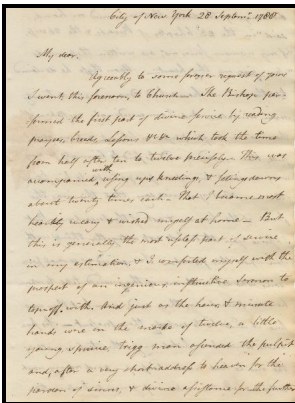 City of New York 28 Septemr. 1788
My dear,
Agreeably to some former request of yours
I went, this forenoon, to Church — The Bishop per-
formed the first part of divine service by reading
prayers, creeds, Lessons &c &c which took the time
from half after ten to twelve precisely. This was
accompanied, with rising ups kneelings, & sitting downs
about twenty times each. That I became most
heartily weary & wished myself at home — But
this is generally the most useless part of service
in my estimation, & I comforted myself with the
prospect of an ingenious, instructive Sermon to
top off with. And just as the hour & minute
hands were on the mark of twelve, a little
young, spruce, trigg man ascended the pulpit
and, after a very short address to heaven for the
pardon of sinners, & divine assistance for the further